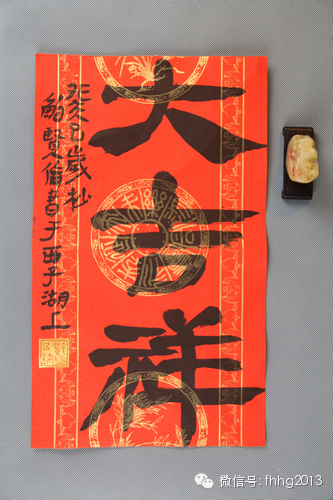 大吉祥
癸巳歲杪
鮑賢倫書于西子湖上
微信号: fhhg2013